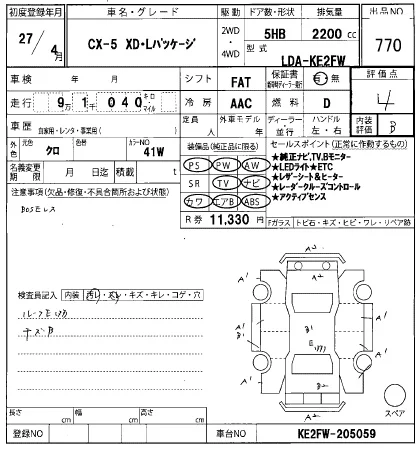 初度登録年月
27/4月
車名・グレード
CX-5 XD・Lパッケージ
駆動
2WD
4WD
ドア数・形状
5HB
排気量
2200 cc
型式
LDA-KE2FW
出品NO
770
車検 年 月
シフト
FAT
保証書
有 無
評価点
4
走行 9万1千040キロ・マイル
冷房
AAC
燃料
D
内装評価
B
車歴 自家用・レンタ・事業用( )
定員 人
外車モデル 年
ディーラー・並行
ハンドル
左・右
外色
元色
クロ
カラーNO
41W
名義変更期限 月 日迄
積載 t
装備品(純正品に限る)
PS PW AW
SR TV ナビ
カワ エアB ABS
R券 11,330 円
セールスポイント(正常に作動するもの)
★純正ナビ,TV,Bモニター
★LEDライト★ETC
★レザーシート&ヒーター
★レーダークルーズコントロール
★アクティブセンス
注意事項(欠品・修復・不具合箇所および状態)
BOSEレス
Fガラス トビ石・キズ・ヒビ・ワレ・リペア跡
検査員記入 内装 汚レ・スレ・キズ・キレ・コゲ・穴
チズB
A2
A2
A1
A1
A1
B1
B1
A1
A1
A1
B2
A2
スペア
長さ cm
幅 cm
高さ cm
登録NO
車台NO
KE2FW-205059